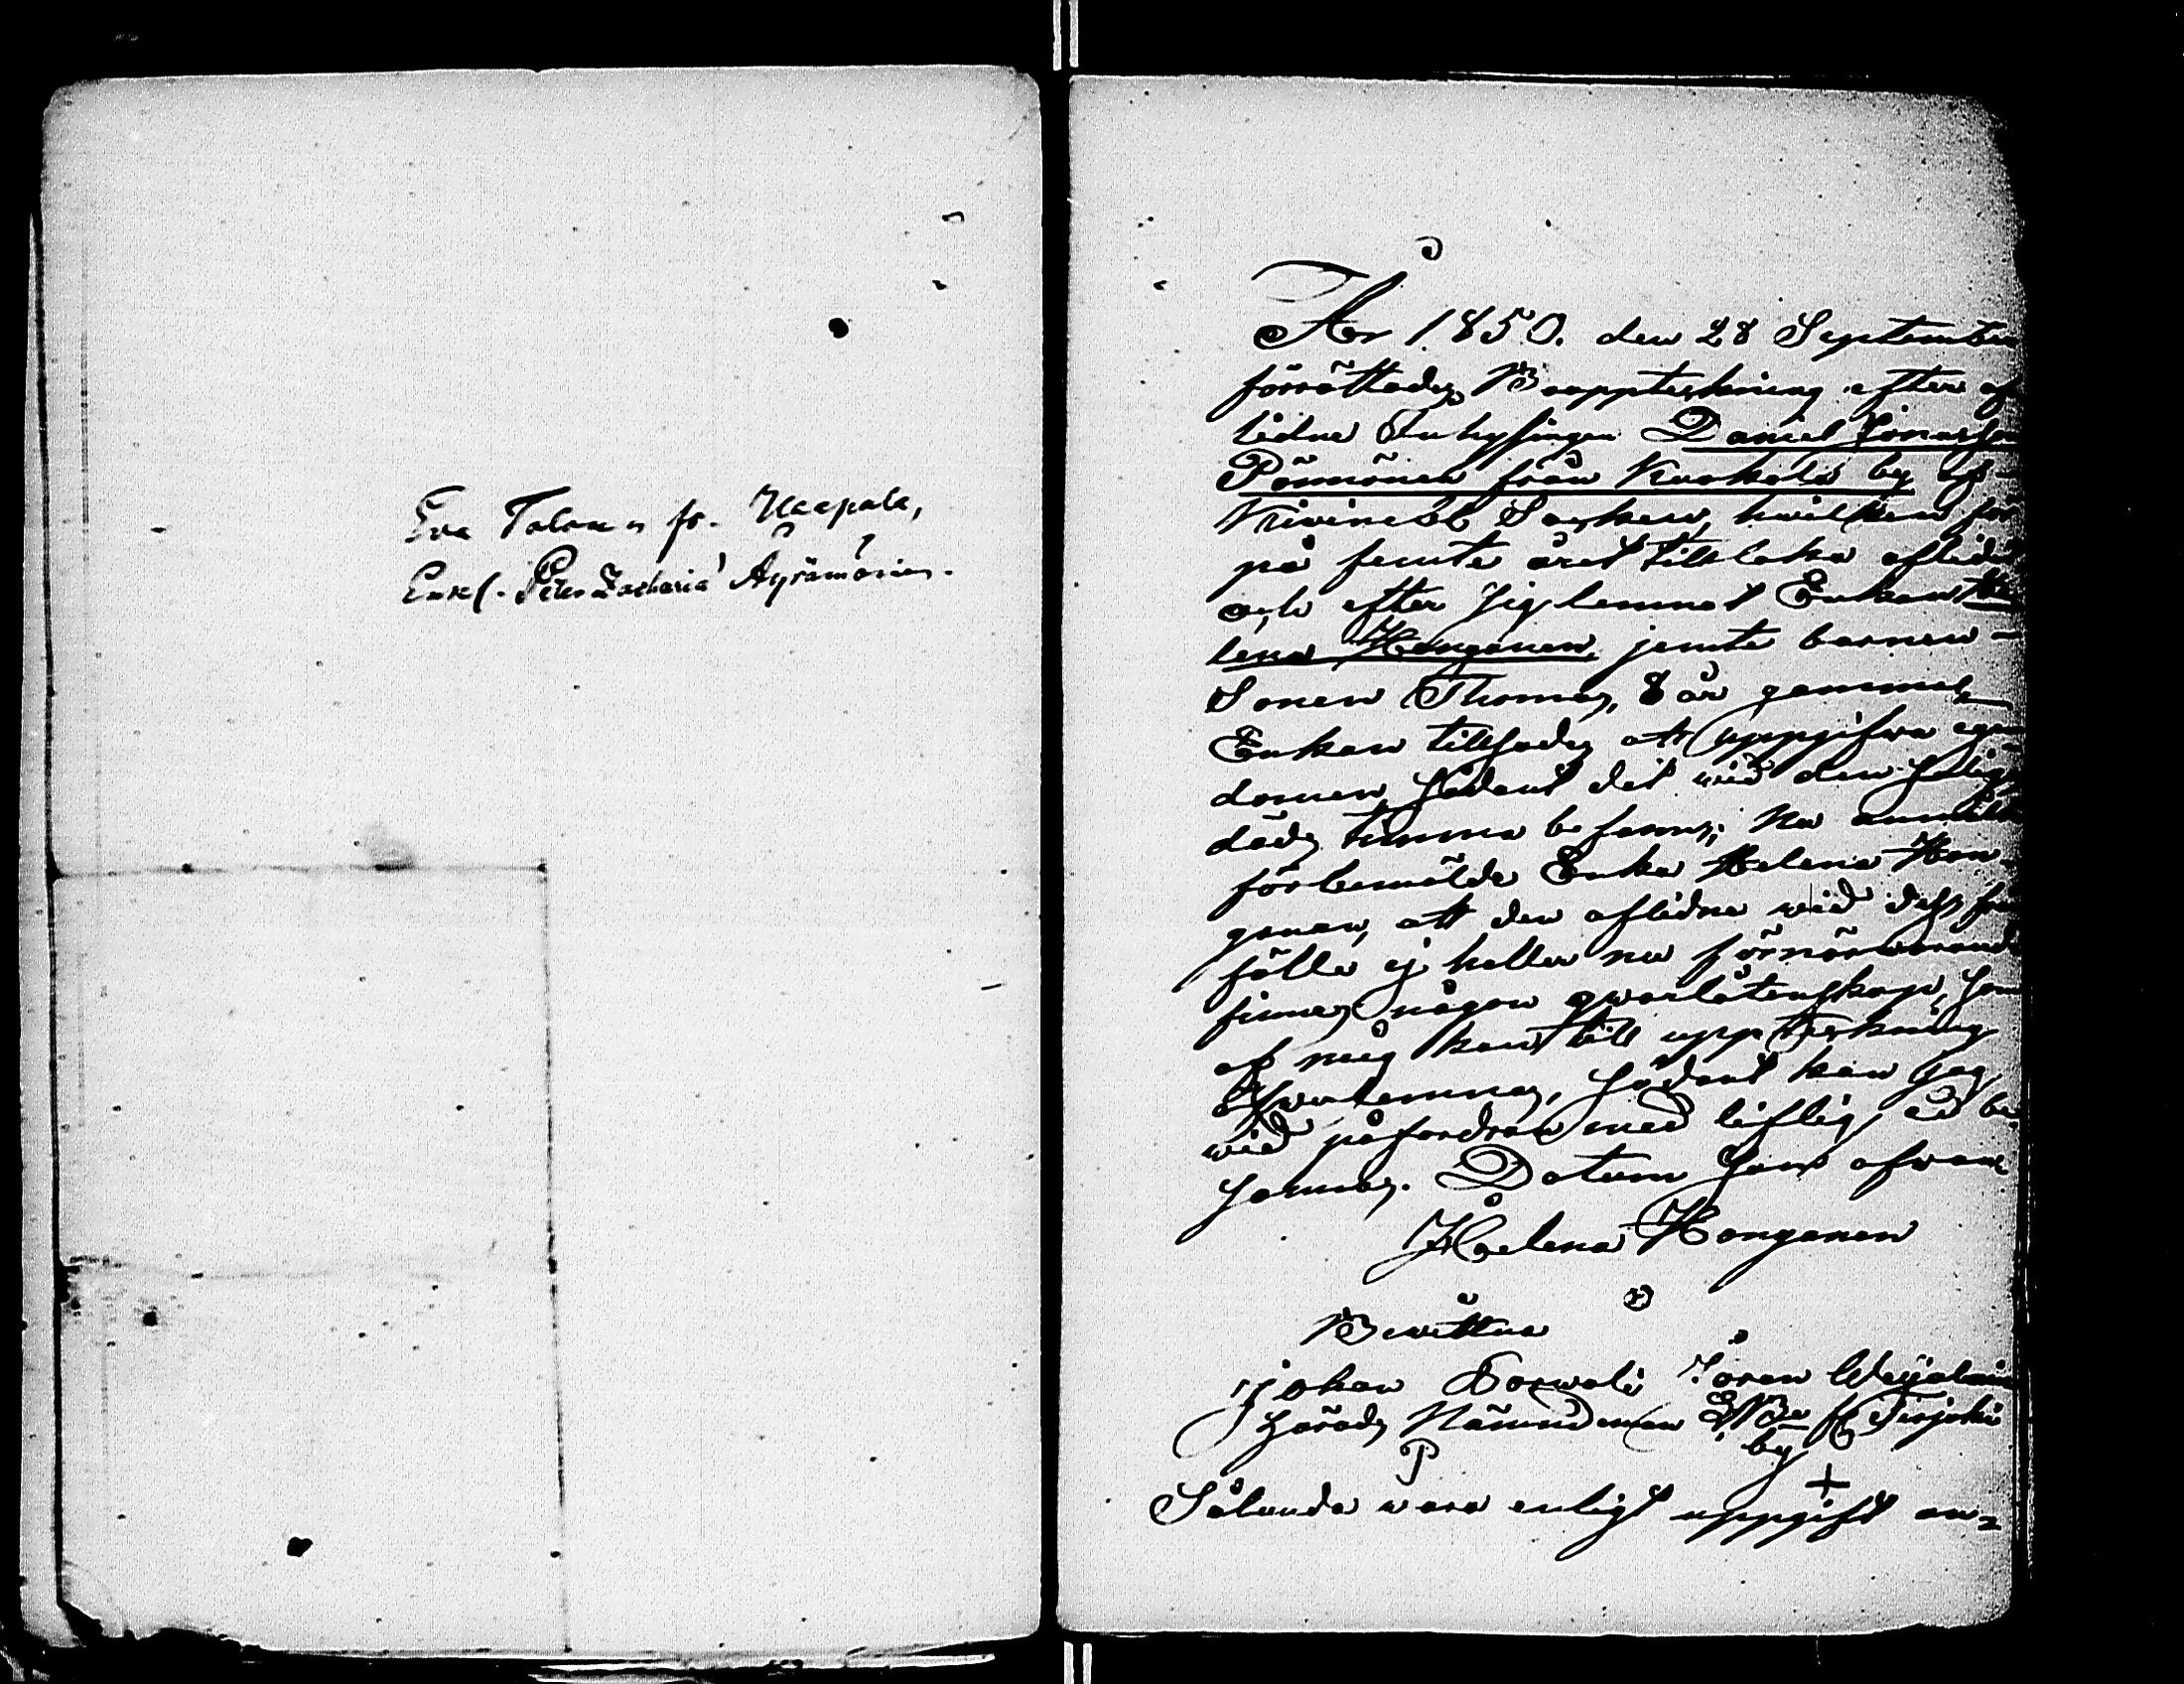 Eva Talon n fr. Haapala,
Enkl. Peter Zachariæ Äyrämöinen.
År 1850. den 28 September
förrättades Bouppteckning efter af
lidne Inhysingen Daniel Jonasson
Pönnönen från Kuokala by af
Kivinebb Socken, hwilken för
på femte året tillbaka aflidit
och efter sig lemnat Enkan He
lena Hongonen, jemte barnen -
Sonen Thomas, 8 år gammal
Enkan tillsades att uppgifwa egen
domen, sådant det wid den
döds timma befanns; Nu anmälte
förbemälde Enka Helena Hon-
gonen, att den aflidne wid dess från
fälle ej heller nu förnärwarande
finnes någon qwarlåtenskap, som
af mig kan till uppteckning
öfwerlemnas, sådant kan jag
wid påfordran med liflig ed be
Datum som ofwan
Helena Hongonen
Bewittna
Johan Sorwali Jöran
Härads Nämndeman fr Terijoki
by
Sålunda wara enligt uppgift an-